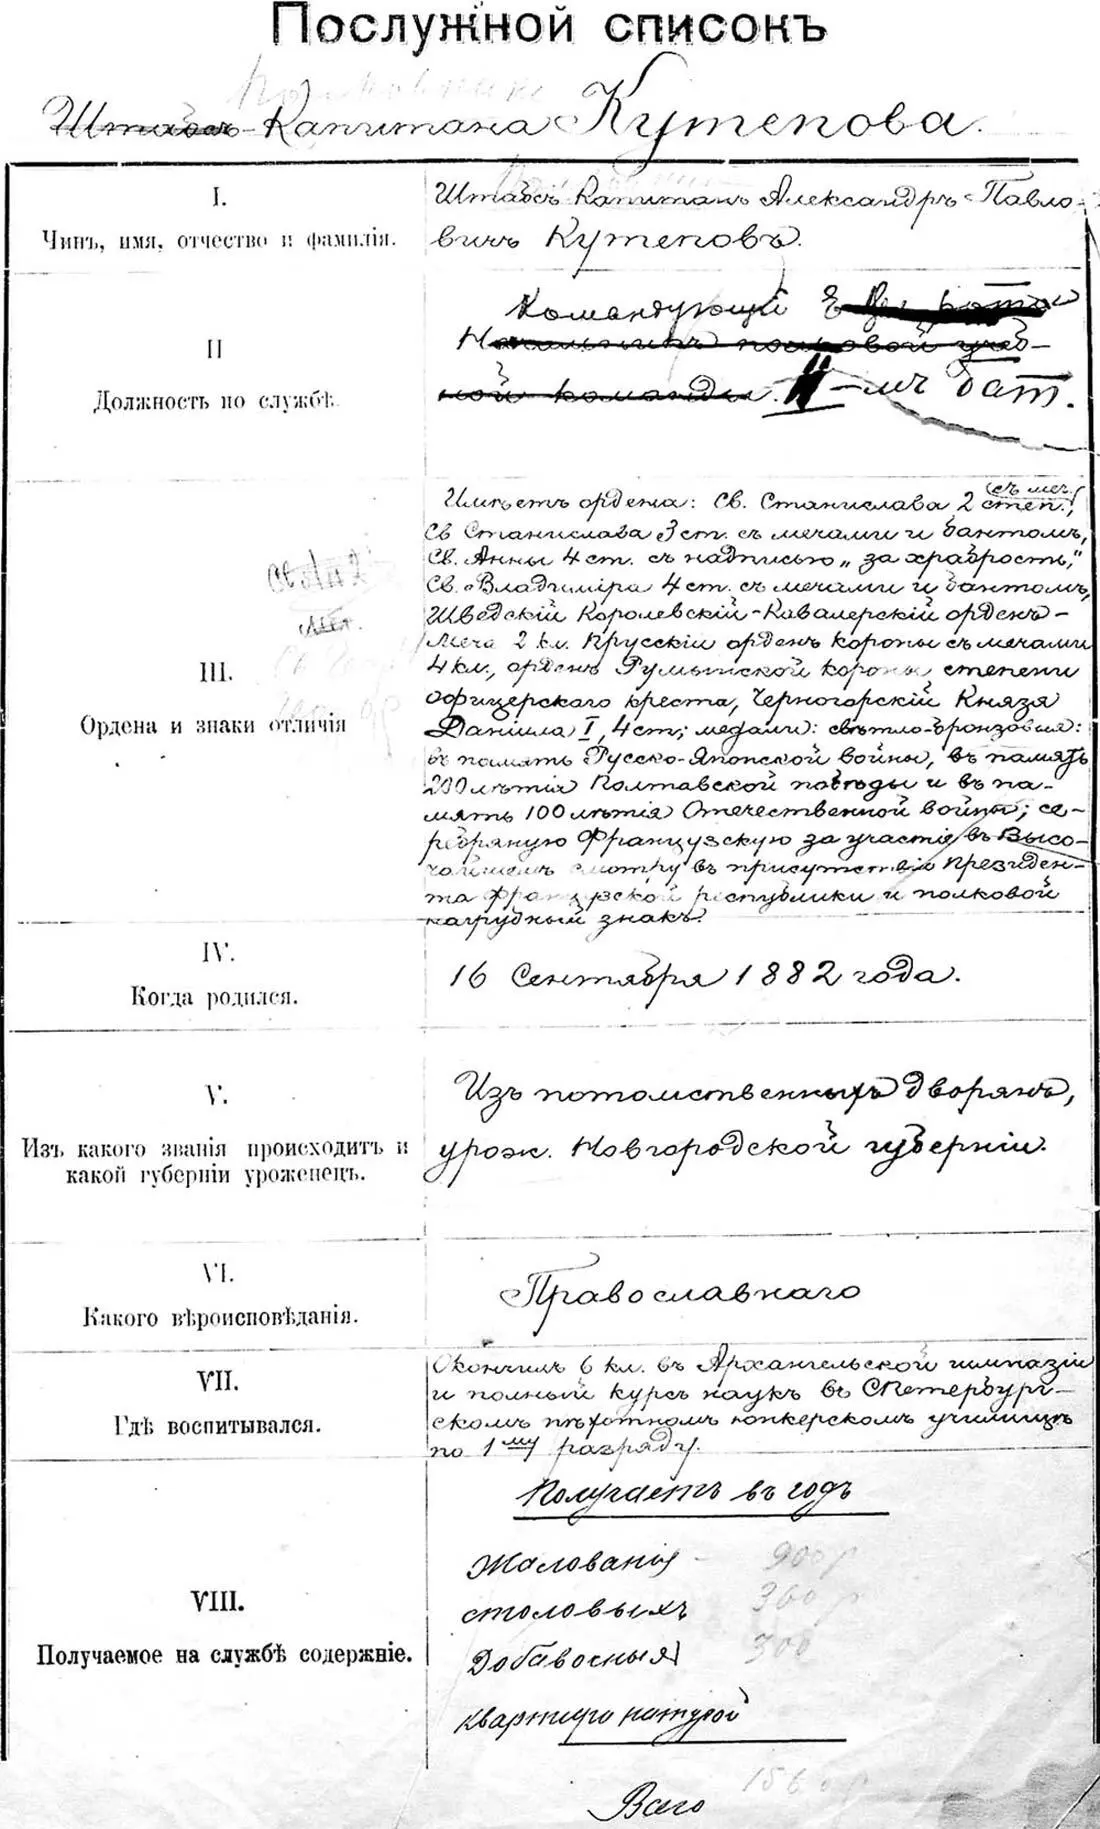 Послужной списокъ
Полковника
Штабсъ-Капитана Кутепова.
I.
Чинъ, имя, отчество и фамилія.
Штабсъ Капитанъ Александръ Павло-
вичъ Кутеповъ.
II
Должность по службѣ.
Командующій ротой
Начальникъ полковой учеб-
ной команды. II-мъ бат.
III.
Ордена и знаки отличія
Имѣетъ ордена: Св. Станислава 2 степ. съ меч.,
Св Станислава 3 ст. съ мечами и бантомъ,
Св. Анны 4 ст. съ надписью „за храбрость,"
Св. Владиміра 4 ст. съ мечами и бантомъ,
Шведскій Королевскій-Кавалерскій орденъ-
Меча 2 кл. Прусскій орденъ короны съ мечами
4 кл., орденъ Румынской короны степени
офицерскаго креста, Черногорскій Князя
Даніила I, 4 ст; медали: свѣтло-бронзовыя:
въ память Русско-Японской войны, въ память
200 лѣтія Полтавской победы и въ па-
мять 100 лѣтія Отечественной войны; се-
ребряную Французскую за участіе въ Высо-
чайшемъ смотру въ присутствіи Президен-
та Французской республики и полковой
нагрудный знакъ.
IV.
Когда родился.
16 Сентября 1882 года.
V.
Изъ какого званія происходитъ и
какой губерніи уроженецъ.
Изъ потомственныхъ дворянъ,
урож. Новгородской губерніи.
VI.
Какого вѣроисповѣданія.
Православнаго
VII.
Гдѣ воспитывался.
Окончилъ 6 кл. въ Архангельской гимназіи
и полный курсъ наукъ въ СПетербург-
скомъ пѣхотномъ юнкерскомъ училищѣ
по 1му разряду.
VIII.
Получаемое на службѣ содержніе.
Получаетъ въ годъ
Жалованія - 900 р
столовыхъ 360 р
Добавочныя 300
квартира натурой
1560 р
Всего